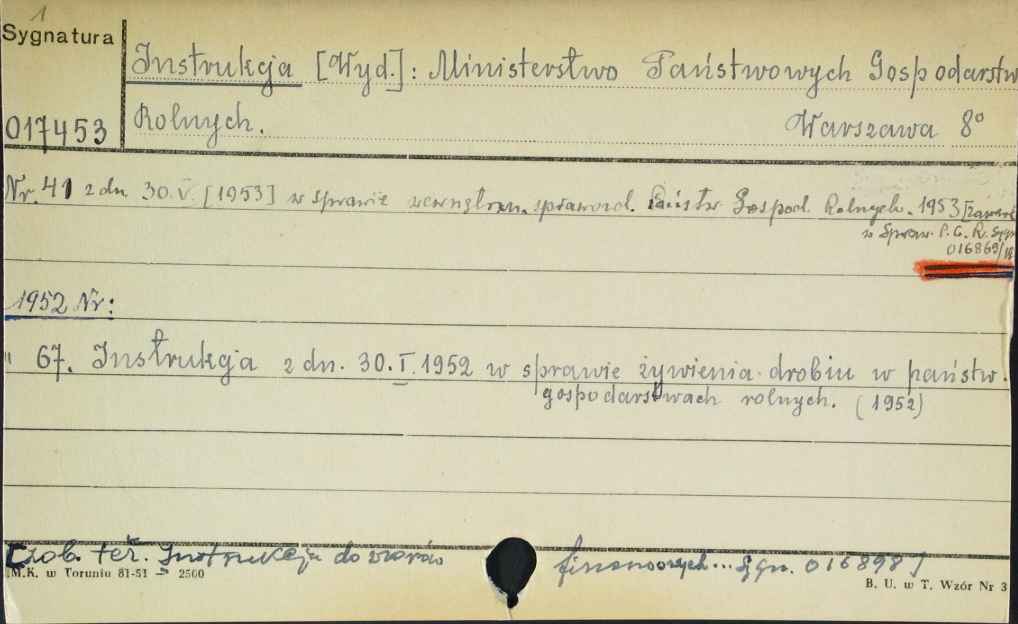 1
Sygnatura
Instrukcja [Wyd.]: Ministerstwo Państwowych Gospodarstw
017453 Rolnych. Warszawa 8°
Nr. 41 z dn. 30.V. [1953] w sprawie wewnętrzn. sprawozd. Państw Gospod. Rolnych. 1953
w Spraw. P. G. R. Sygn
016869/
1952 Nr:
" 67. Instrukcja z dn. 30.I.1952 w sprawie żywienia drobiu w państw.
gospodarstwach rolnych. (1952)
[zob. też. Instrukcja do wzorów finansowych... Sygn. 016898]
M.K. w Toruniu 81-51 — 2500
B. U. w T. Wzór Nr 3